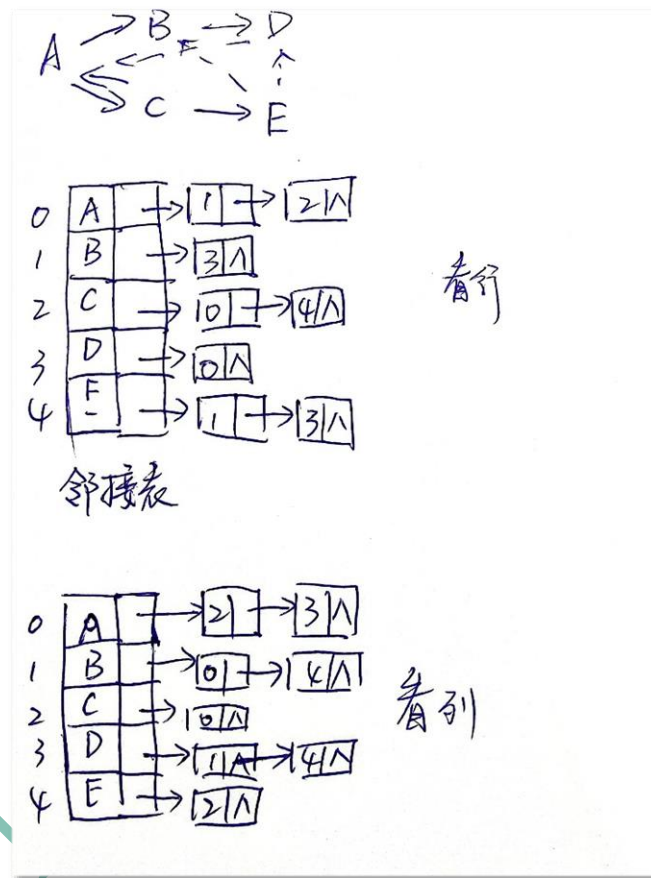 A B D
C E
0 A 1 2 ∧
1 B 3 ∧
2 C 0 4 ∧
3 D 0 ∧
4 E 1 3 ∧
看行
邻接表
0 A 2 3 ∧
1 B 0 4 ∧
2 C 0 ∧
3 D 1 ∧ 4 ∧
4 E 2 ∧
看列